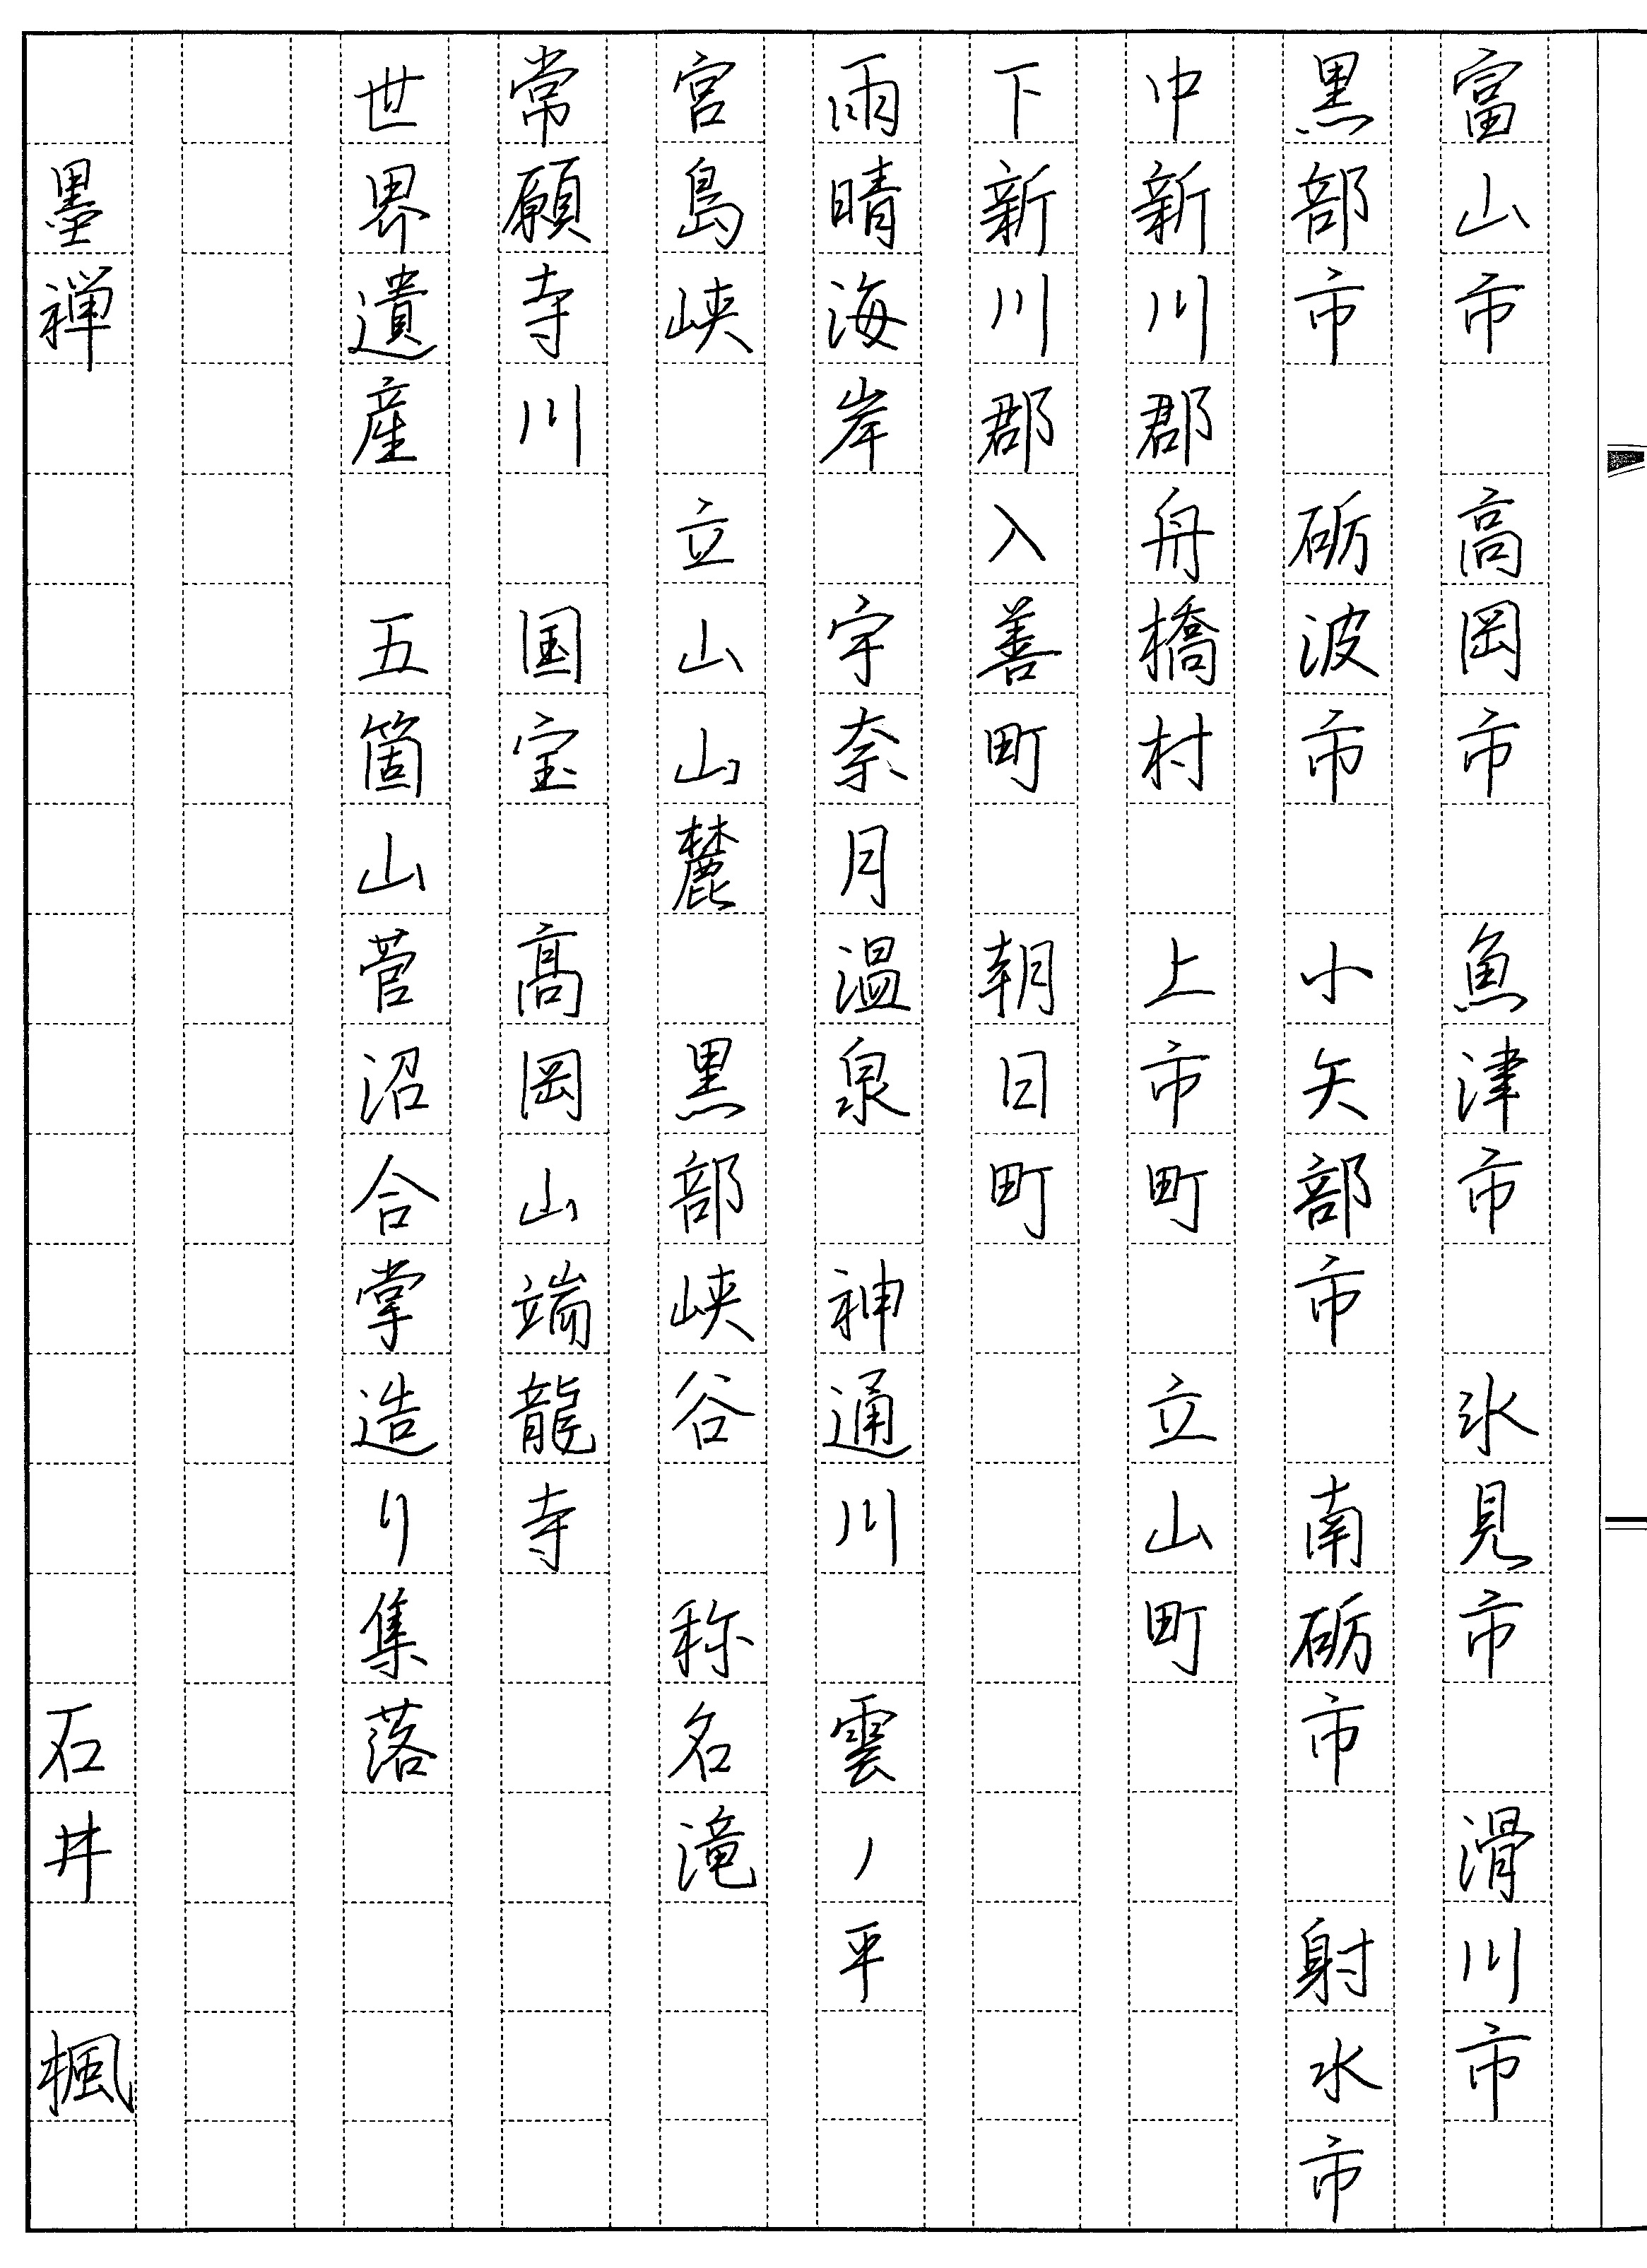 富山市　高岡市　魚津市　氷見市　滑川市
黒部市　砺波市　小矢部市　南砺市　射水市
中新川郡舟橋村　上市町　立山町
下新川郡入善町　朝日町
雨晴海岸　宇奈月温泉　神通川　雲ノ平
宮島峡　立山山麓　黒部峡谷　称名滝
常願寺川　国宝　高岡山端龍寺
世界遺産　五箇山菅沼合掌造り集落
墨禅　石井　楓